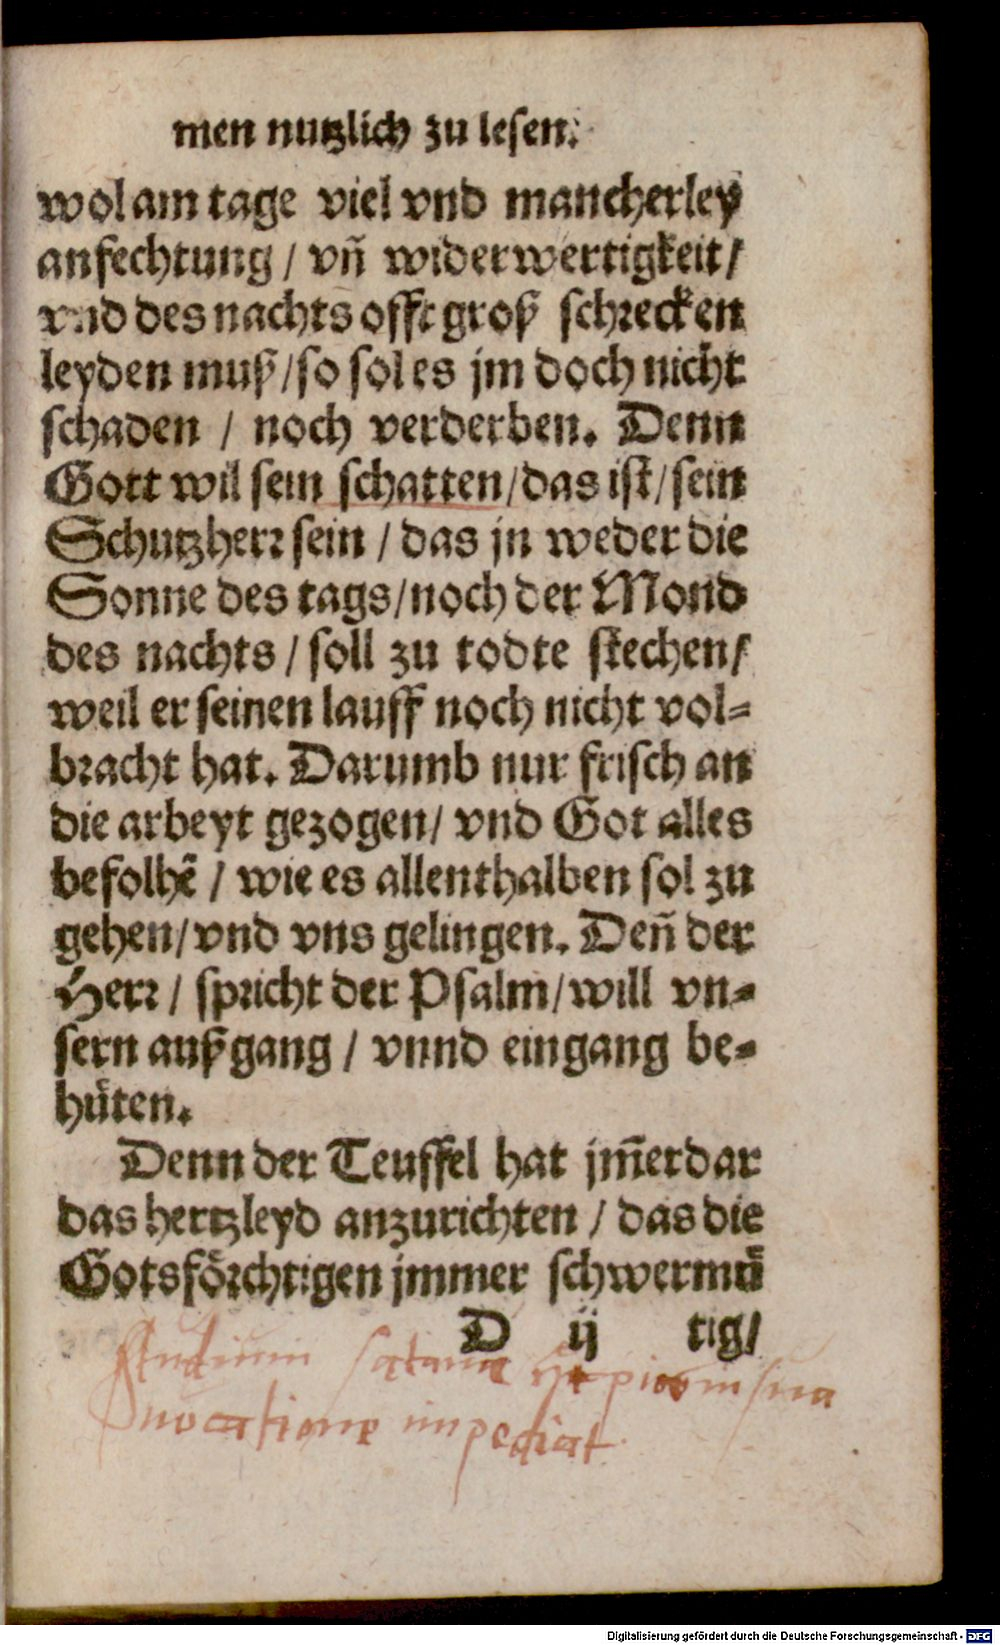 men nutzlich zu lesen.
wol am tage viel vnd mancherley
anfechtung / vn̄ widerwertigkeit /
vnd des nachts offt groß schrecken
leyden muß / so sol es jm doch nicht
schaden / noch verderben. Denn
Gott wil sein schatten / das ist / sein
Schutzherr sein / das jn weder die
Sonne des tags / noch der Mond
des nachts / soll zu todte stechen /
weil er seinen lauff noch nicht vol-
bracht hat. Darumb nur frisch an
die arbeyt gezogen / vnd Got alles
befolhē / wie es allenthalben sol zu
gehen / vnd vns gelingen. Den̄ der
Herr / spricht der Psalm / will vn-
sern außgang / vnnd eingang be-
huͤten.
Denn der Teuffel hat jm̄erdar
das hertzleyd anzurichten / das die
Gotsfoͤrchtigen jmmer schwermuͤ
D ij tig /
studium satanae ut pios in sua
vocatione impediat.
Digitalisierung gefördert durch die Deutsche Forschungsgemeinschaft - DFG